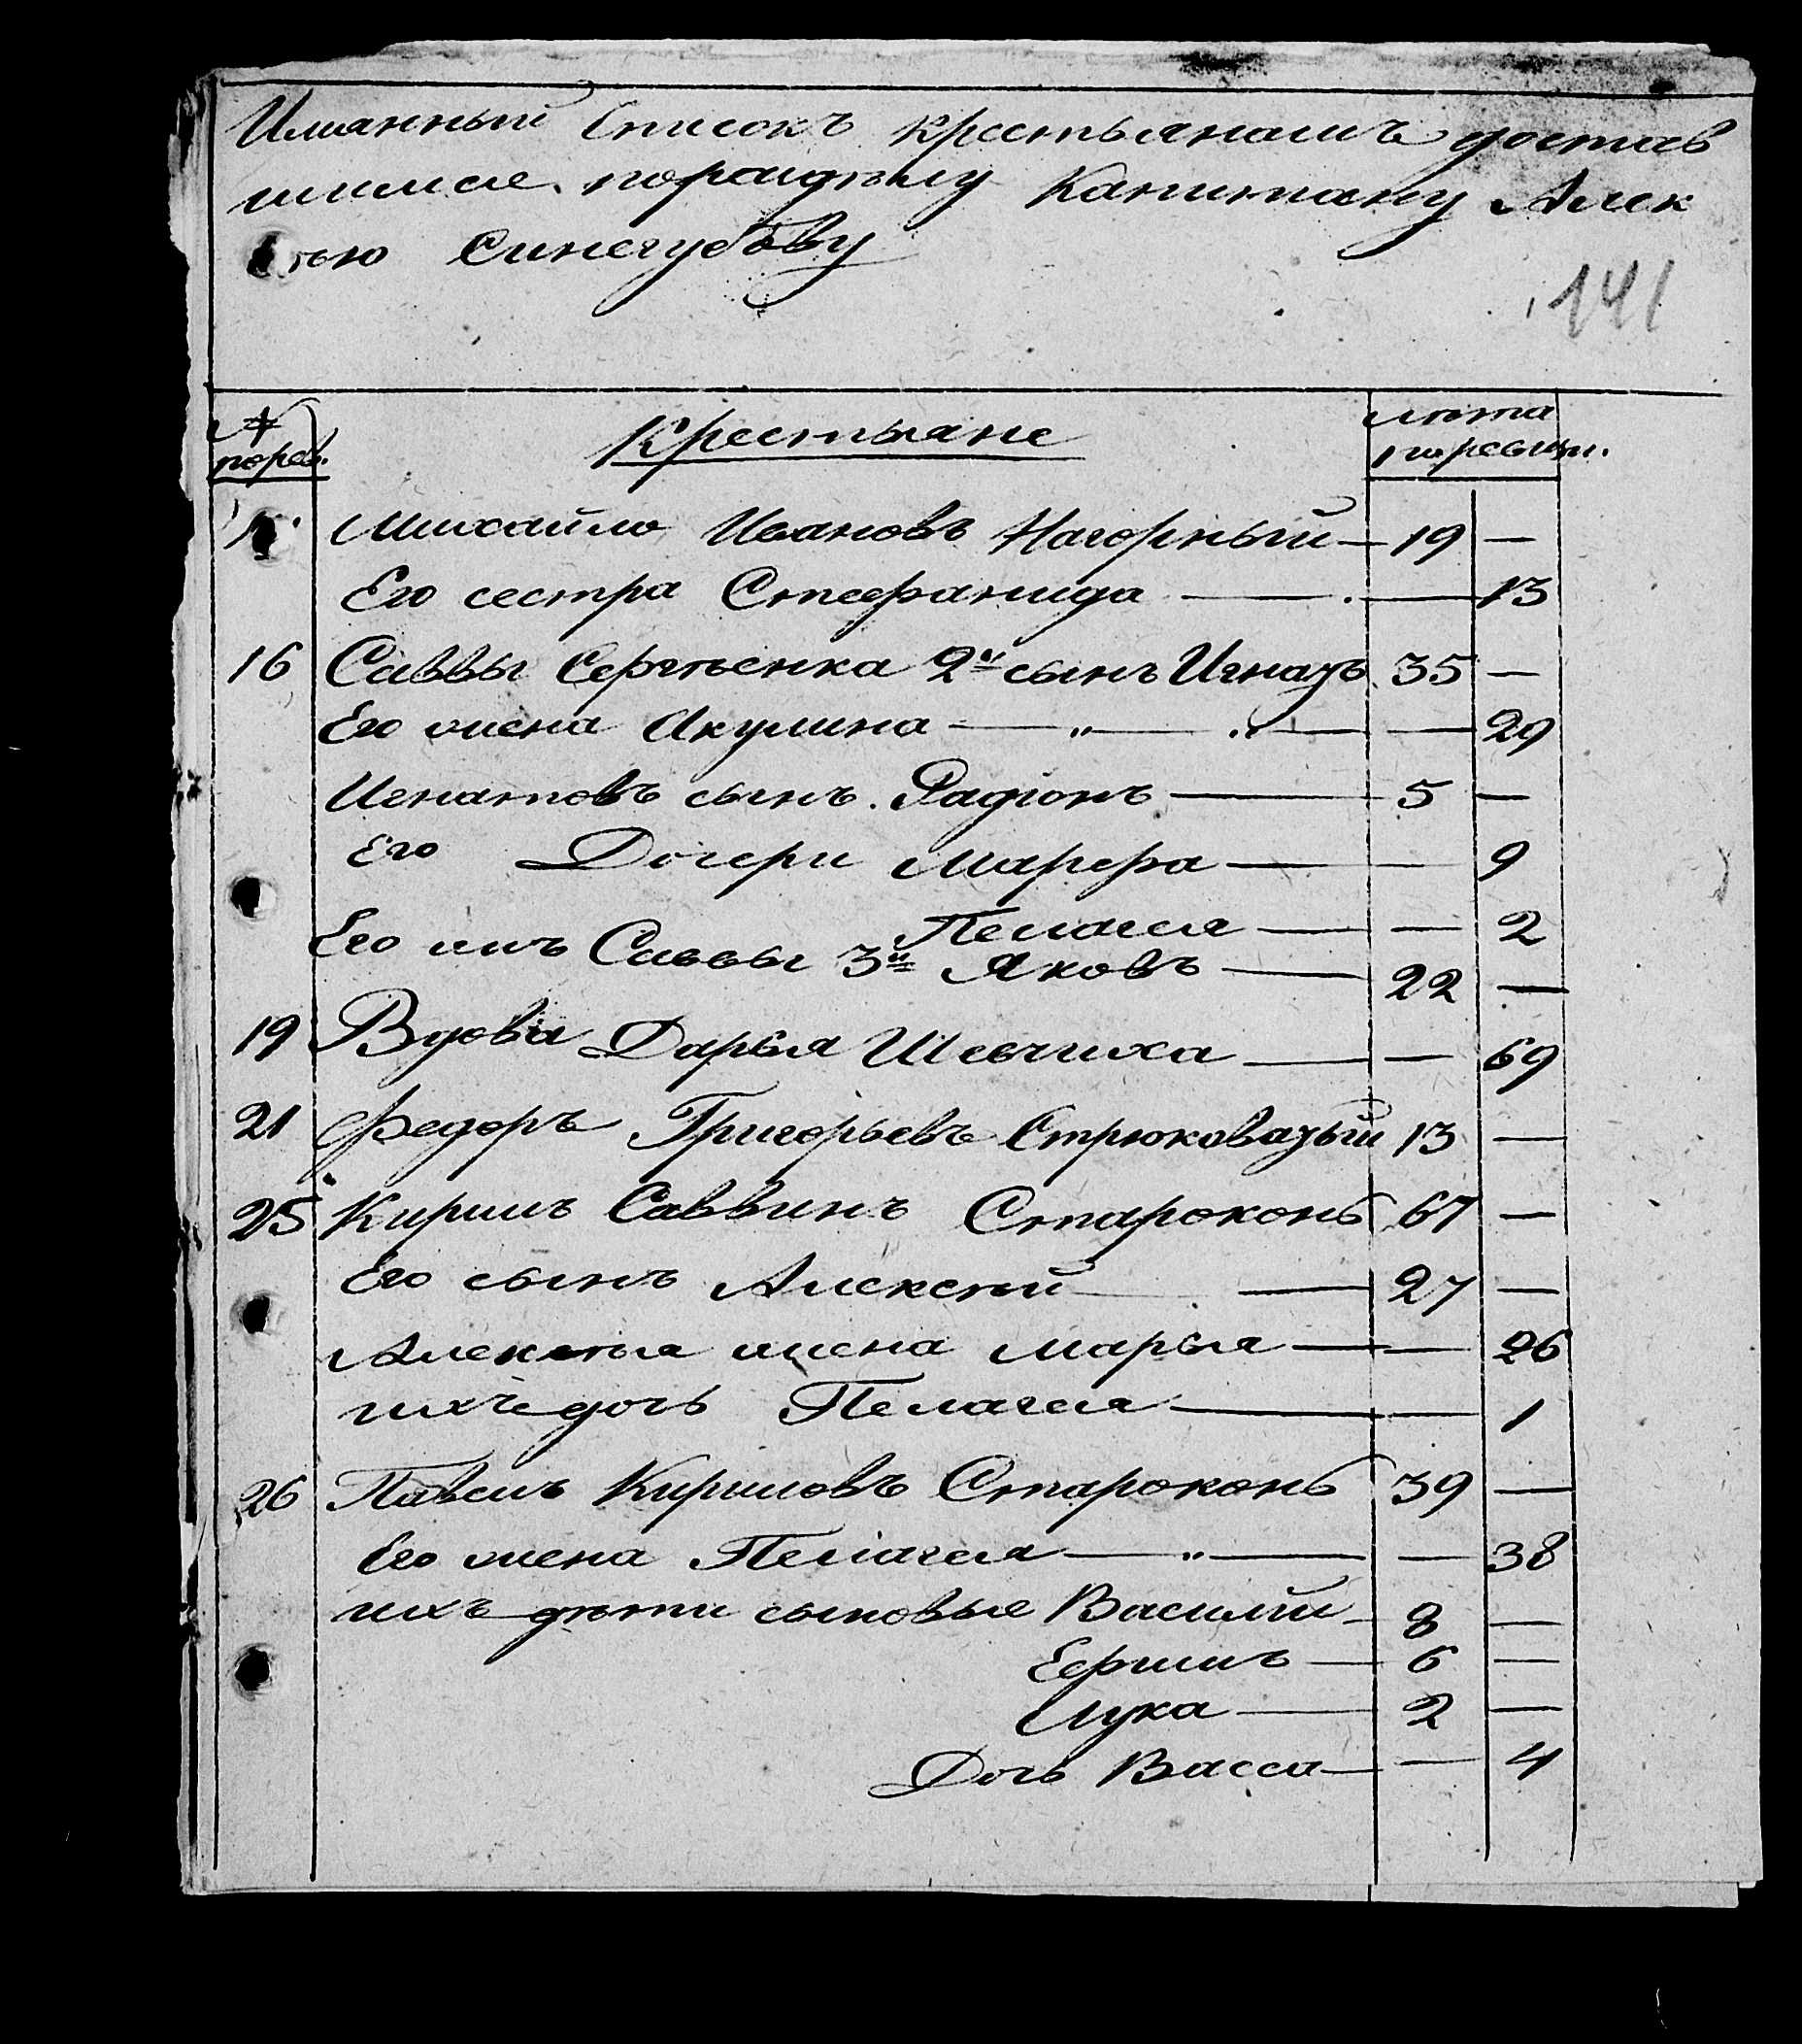 Имянный Списокъ крестьянамъ достав
шимся по раздѣлу Капитану Алек
сѣю Синегубову
141
№ по рев.
Крестьяне
лѣта по ревизи.
Михайло Ивановъ Нагорный — 19 —
Его сестра Стефанида — — 13
16 Саввы Сергѣенка 2й сынъ Игнатъ 35 —
Его жена Акулина — " — " — — 29
Игнатовъ сынъ Радіонъ — 5 —
Его Дочери Марфа — — 9
Пелагея — — 2
Его жъ Саввы 3й Яковъ — 22 —
19 Вдова Дарья Шевчиха — — 69
21 Федоръ Григорьевъ Стрюковатый 13 —
25 Кирилъ Саввинъ Староконь 67 —
Его сынъ Алексѣй — 27 —
Алексѣя жена Марья — — 26
ихъ дочь Пелагея — — 1
26 Павелъ Кириловъ Староконь 39 —
Его жена Пелагея — " — — 38
ихъ дѣти сыновья Василій — 8 —
Ефимъ — 6 —
Лука — 2 —
Дочь Васса — — 4